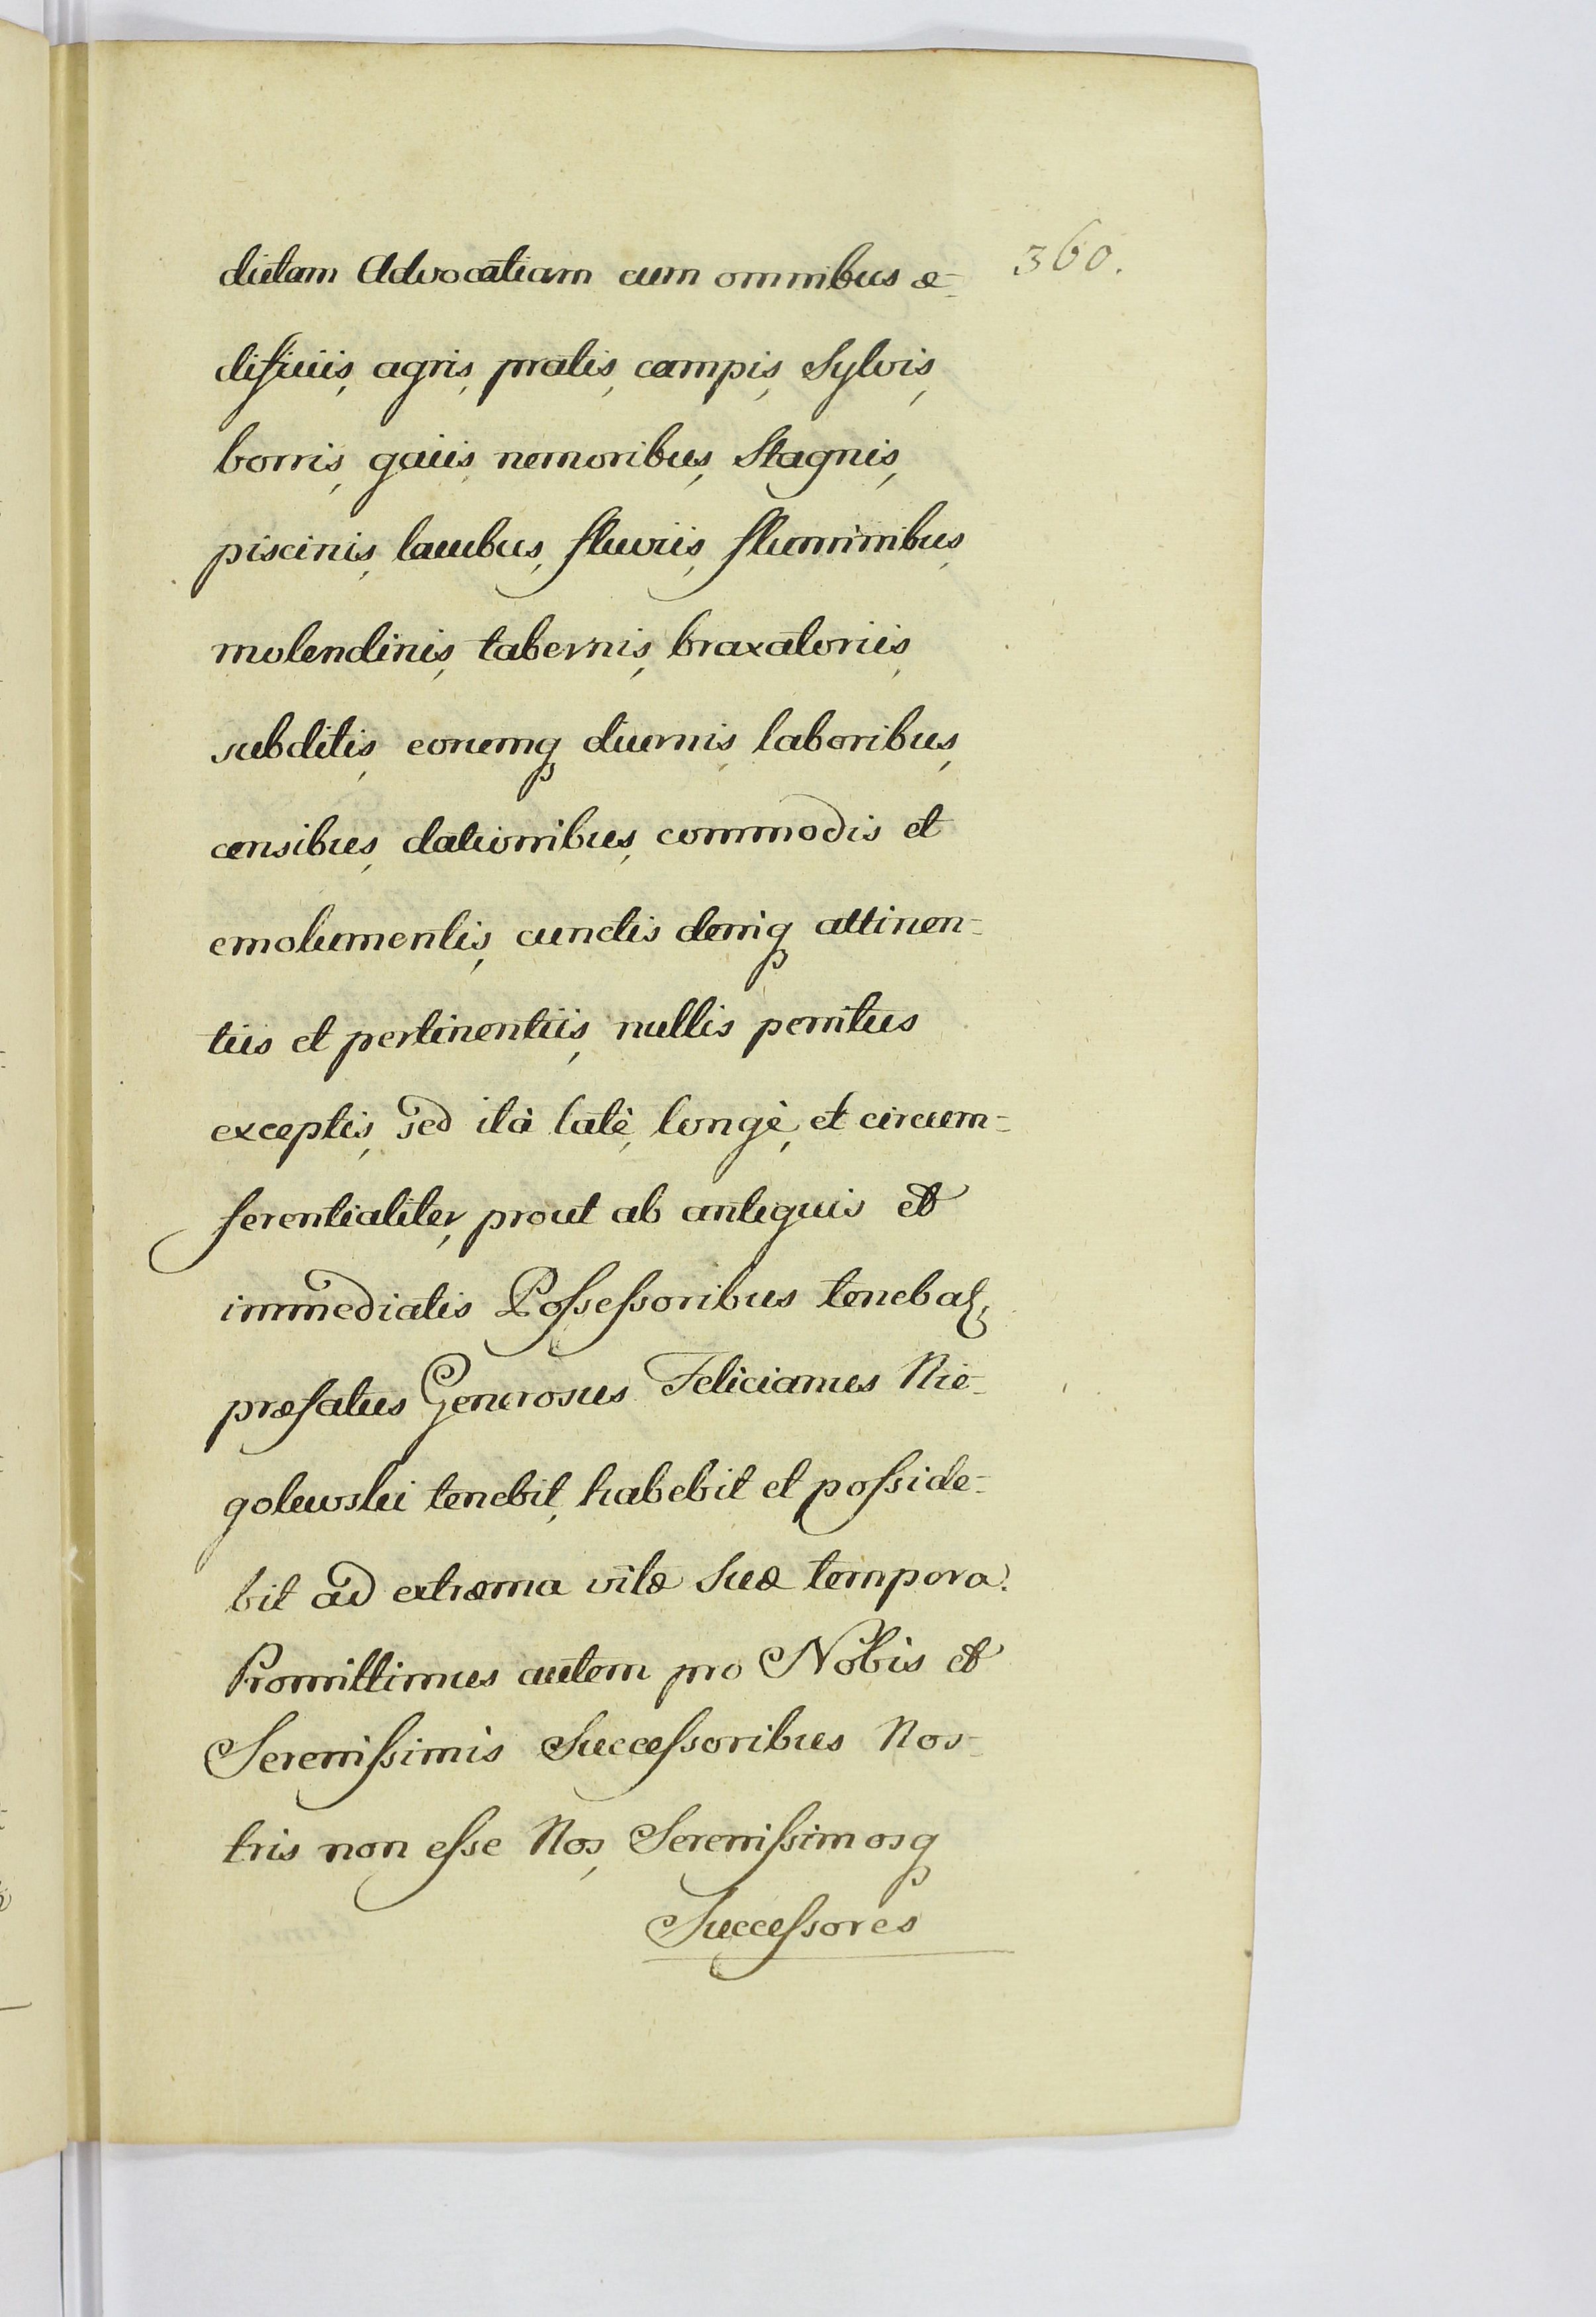 360.
dictam Advocatiam cum omnibus æ-
dificiis, agris, pratis, campis, Sylvis,
borris, gaiis, nemoribus, Stagnis,
piscinis, lacubus, fluviis, fluminibus,
molendinis, tabernis, braxatoriis,
subditis, eorumq diurnis, laboribus,
censibus, dationibus, commodis et
emolumentis, cunctis deniq attinen-
tiis et pertinentiis, nullis penitus
exceptis, sed ità latè, longè, et circum-
ferentialiter, prout ab antiquis et
immediatis Possessoribus
præfatus Generosus Felicianus Nie-
golewski tenebit, habebit et posside-
bit ad extrema vitæ Suæ tempora.
Promittimus autem pro Nobis et
Serenissimis Successoribus Nos-
tris non esse Nos, Serenissimosq
Successores